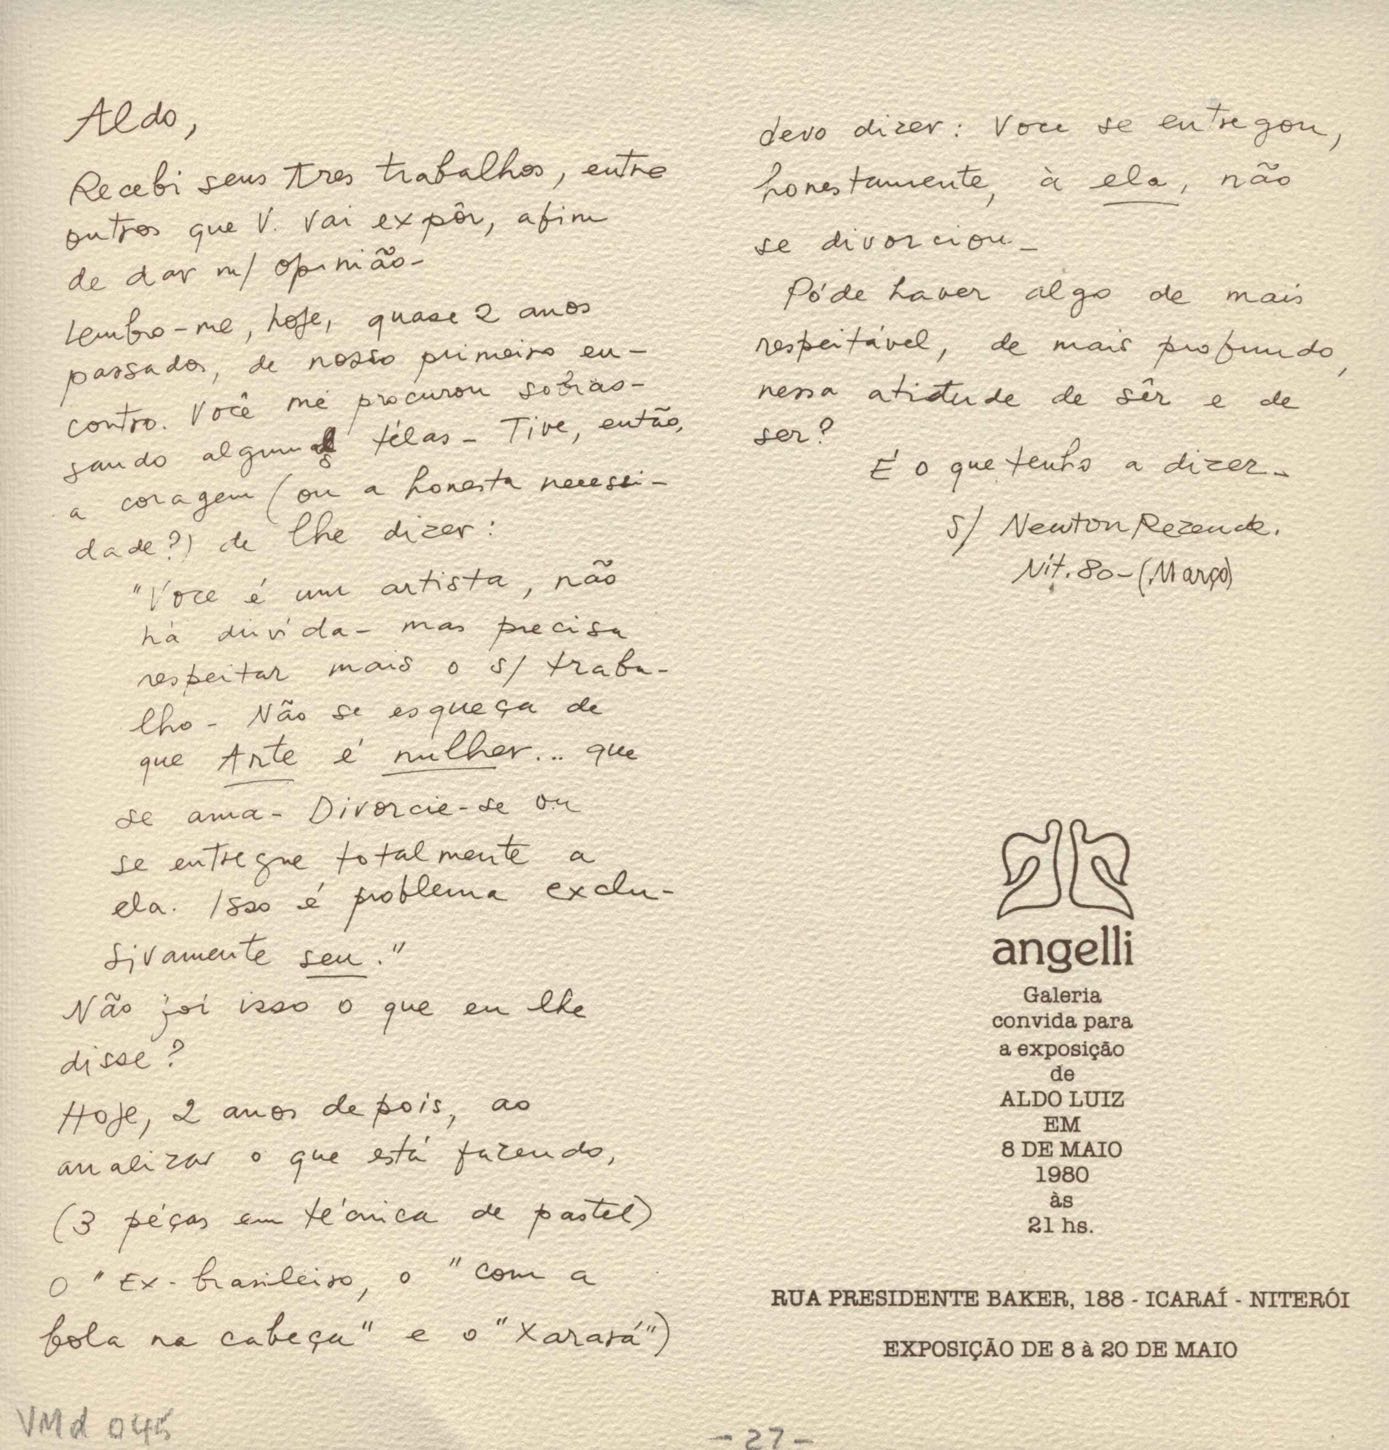 Aldo,
Recebi seus tres trabalhos, entre
outros que V. vai expôr, afim
de dar m/ opinião-
Lembro-me, hoje, quase 2 anos
passados, de nosso primeiro en-
contro. Você me procurou sobras-
sando algumas télas - Tive, então,
a coragem (ou a honesta necessi-
dade?) de lhe dizer:
"Voce é um artista, não
há duvída - mas precisa
respeitar mais o s/ traba-
lho - Não se esqueça de
que Arte é mulher... que
se ama - Divorcie-se ou
se entregue totalmente a
ela. Isso é problema exclu-
sivamente seu."
Não foi isso o que eu lhe
disse?
Hoje, 2 anos depois, ao
analizar o que está fazendo,
(3 péças em técnica de pastel)
O "Ex-brasileiro, o "com a
bola na cabeça" e o "Xarará")
devo dizer: Voce se entregou,
honestamente, à ela, não
se divorciou -
Póde haver algo de mais
respeitável, de mais profundo,
nessa atitude de sêr e de
ser?
É o que tenho a dizer -
s/ Newton Rezende.
Nit. 80 - (Março)
angelli
Galeria
convida para
a exposição
de
ALDO LUIZ
EM
8 DE MAIO
1980
às
21 hs.
RUA PRESIDENTE BAKER, 188 - ICARAÍ - NITERÓI
EXPOSIÇÃO DE 8 à 20 DE MAIO
VMd 045
- 27 -